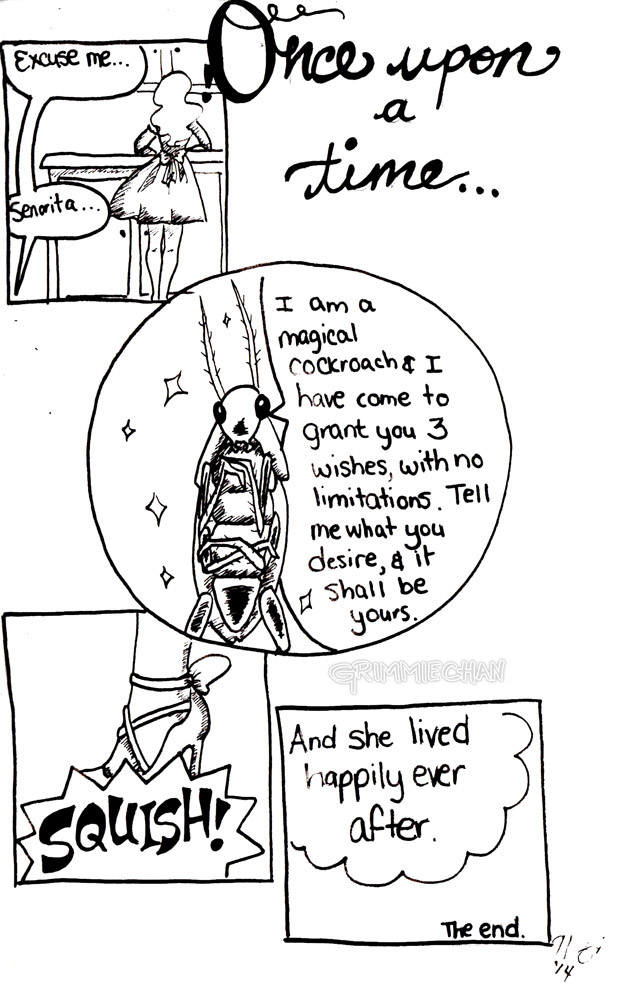 Once upon
a
time...
Excuse me...
Senorita...
I am a
magical
cockroach & I
have come to
grant you 3
wishes, with no
limitations. Tell
me what you
desire, & it
shall be
yours.
GRIMMIECHAN
SQUISH!
And she lived
happily ever
after.
The end.
'14